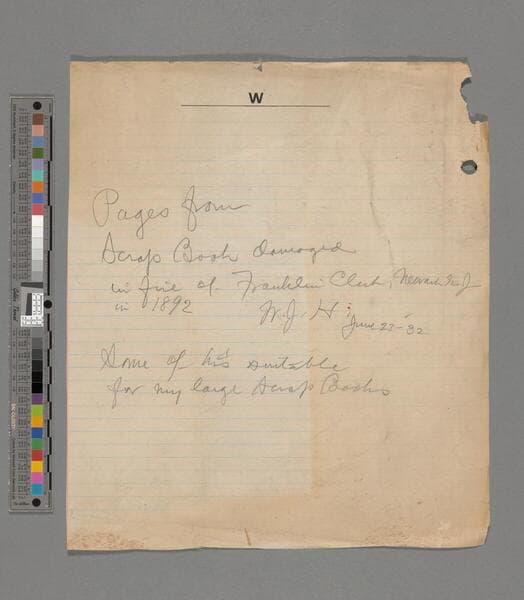 W
Pages from
Scrap Book damaged
in fire of Franklin Club, Newark N.J
in 1892 W. J. H.
June 23-32
Some of his suitable
for my large Scrap Books